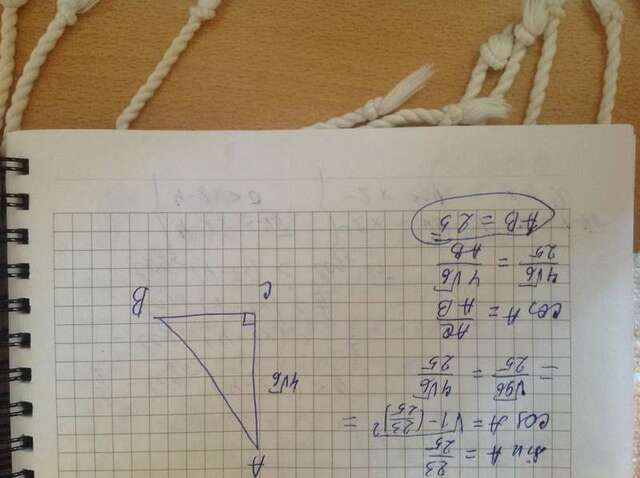 sin A = 23/25
cos A = √(1-(23/25)²) =
= √96/25 = 4√6/25
cos A = AC/AB
4√6/25 = 4√6/AB
AB = 25
A
4√6
C
B